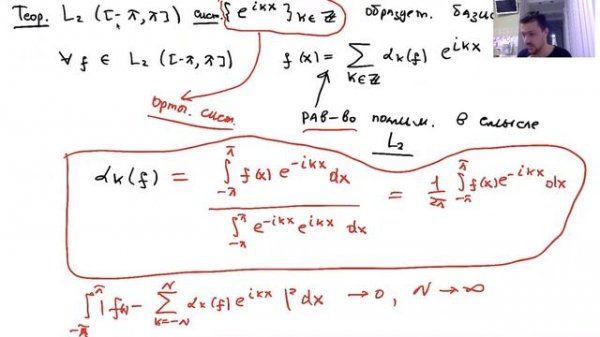 Теор. L₂ ([-π,π]) сист. {e^{ikx}}_{k∈ℤ} образует базис
∀ f ∈ L₂ ([-π,π]) f(x) = ∑_{k∈ℤ} α_k(f) e^{ikx}
ортог. сист. РАВ-ВО поним. в смысле
L₂
α_k(f) = ∫_{-π}^{π} f(x) e^{-ikx} dx / ∫_{-π}^{π} e^{-ikx} e^{ikx} dx = 1/2π ∫_{-π}^{π} f(x) e^{-ikx} dx
∫_{-π}^{π} | f(x) - ∑_{k=-N}^{N} α_k(f) e^{ikx} |² dx → 0, N → ∞